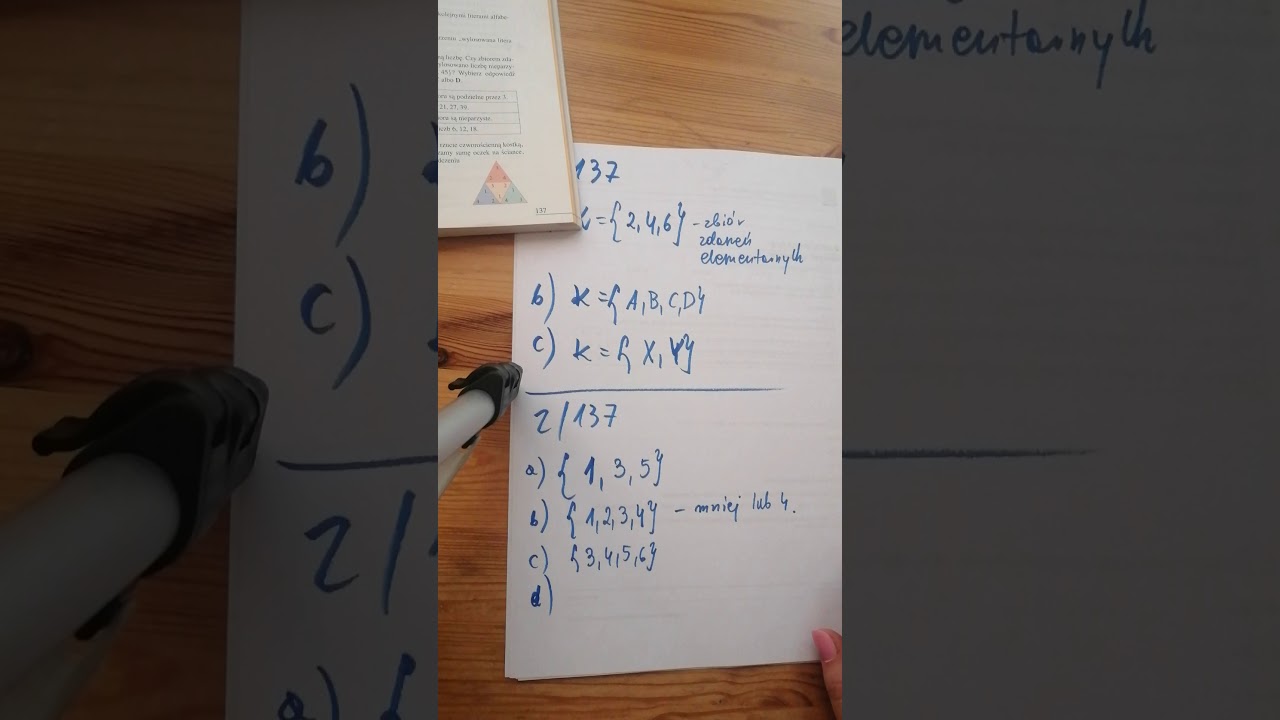 kolejnymi literami alfabe-
„wylosowana litera
liczbę. Czy zbiorem zda-
wylosowano liczbę nieparzy-
45}? Wybierz odpowiedź
albo D.
są podzielne przez 3.
21, 27, 39.
są nieparzyste.
6, 12, 18.
rzucie czworościenną kostką,
sumę oczek na ściance,
137
137
= {2,4,6} - zbiór
zdarzeń
elementarnych
b) K = {A, B, C, D}
c) K = { X, Y}
2/137
a) { 1, 3, 5}
b) {1,2,3,4} - mniej lub 4.
c) {3,4,5,6}
d)
elementarnych
b)
c)
2/
a) {